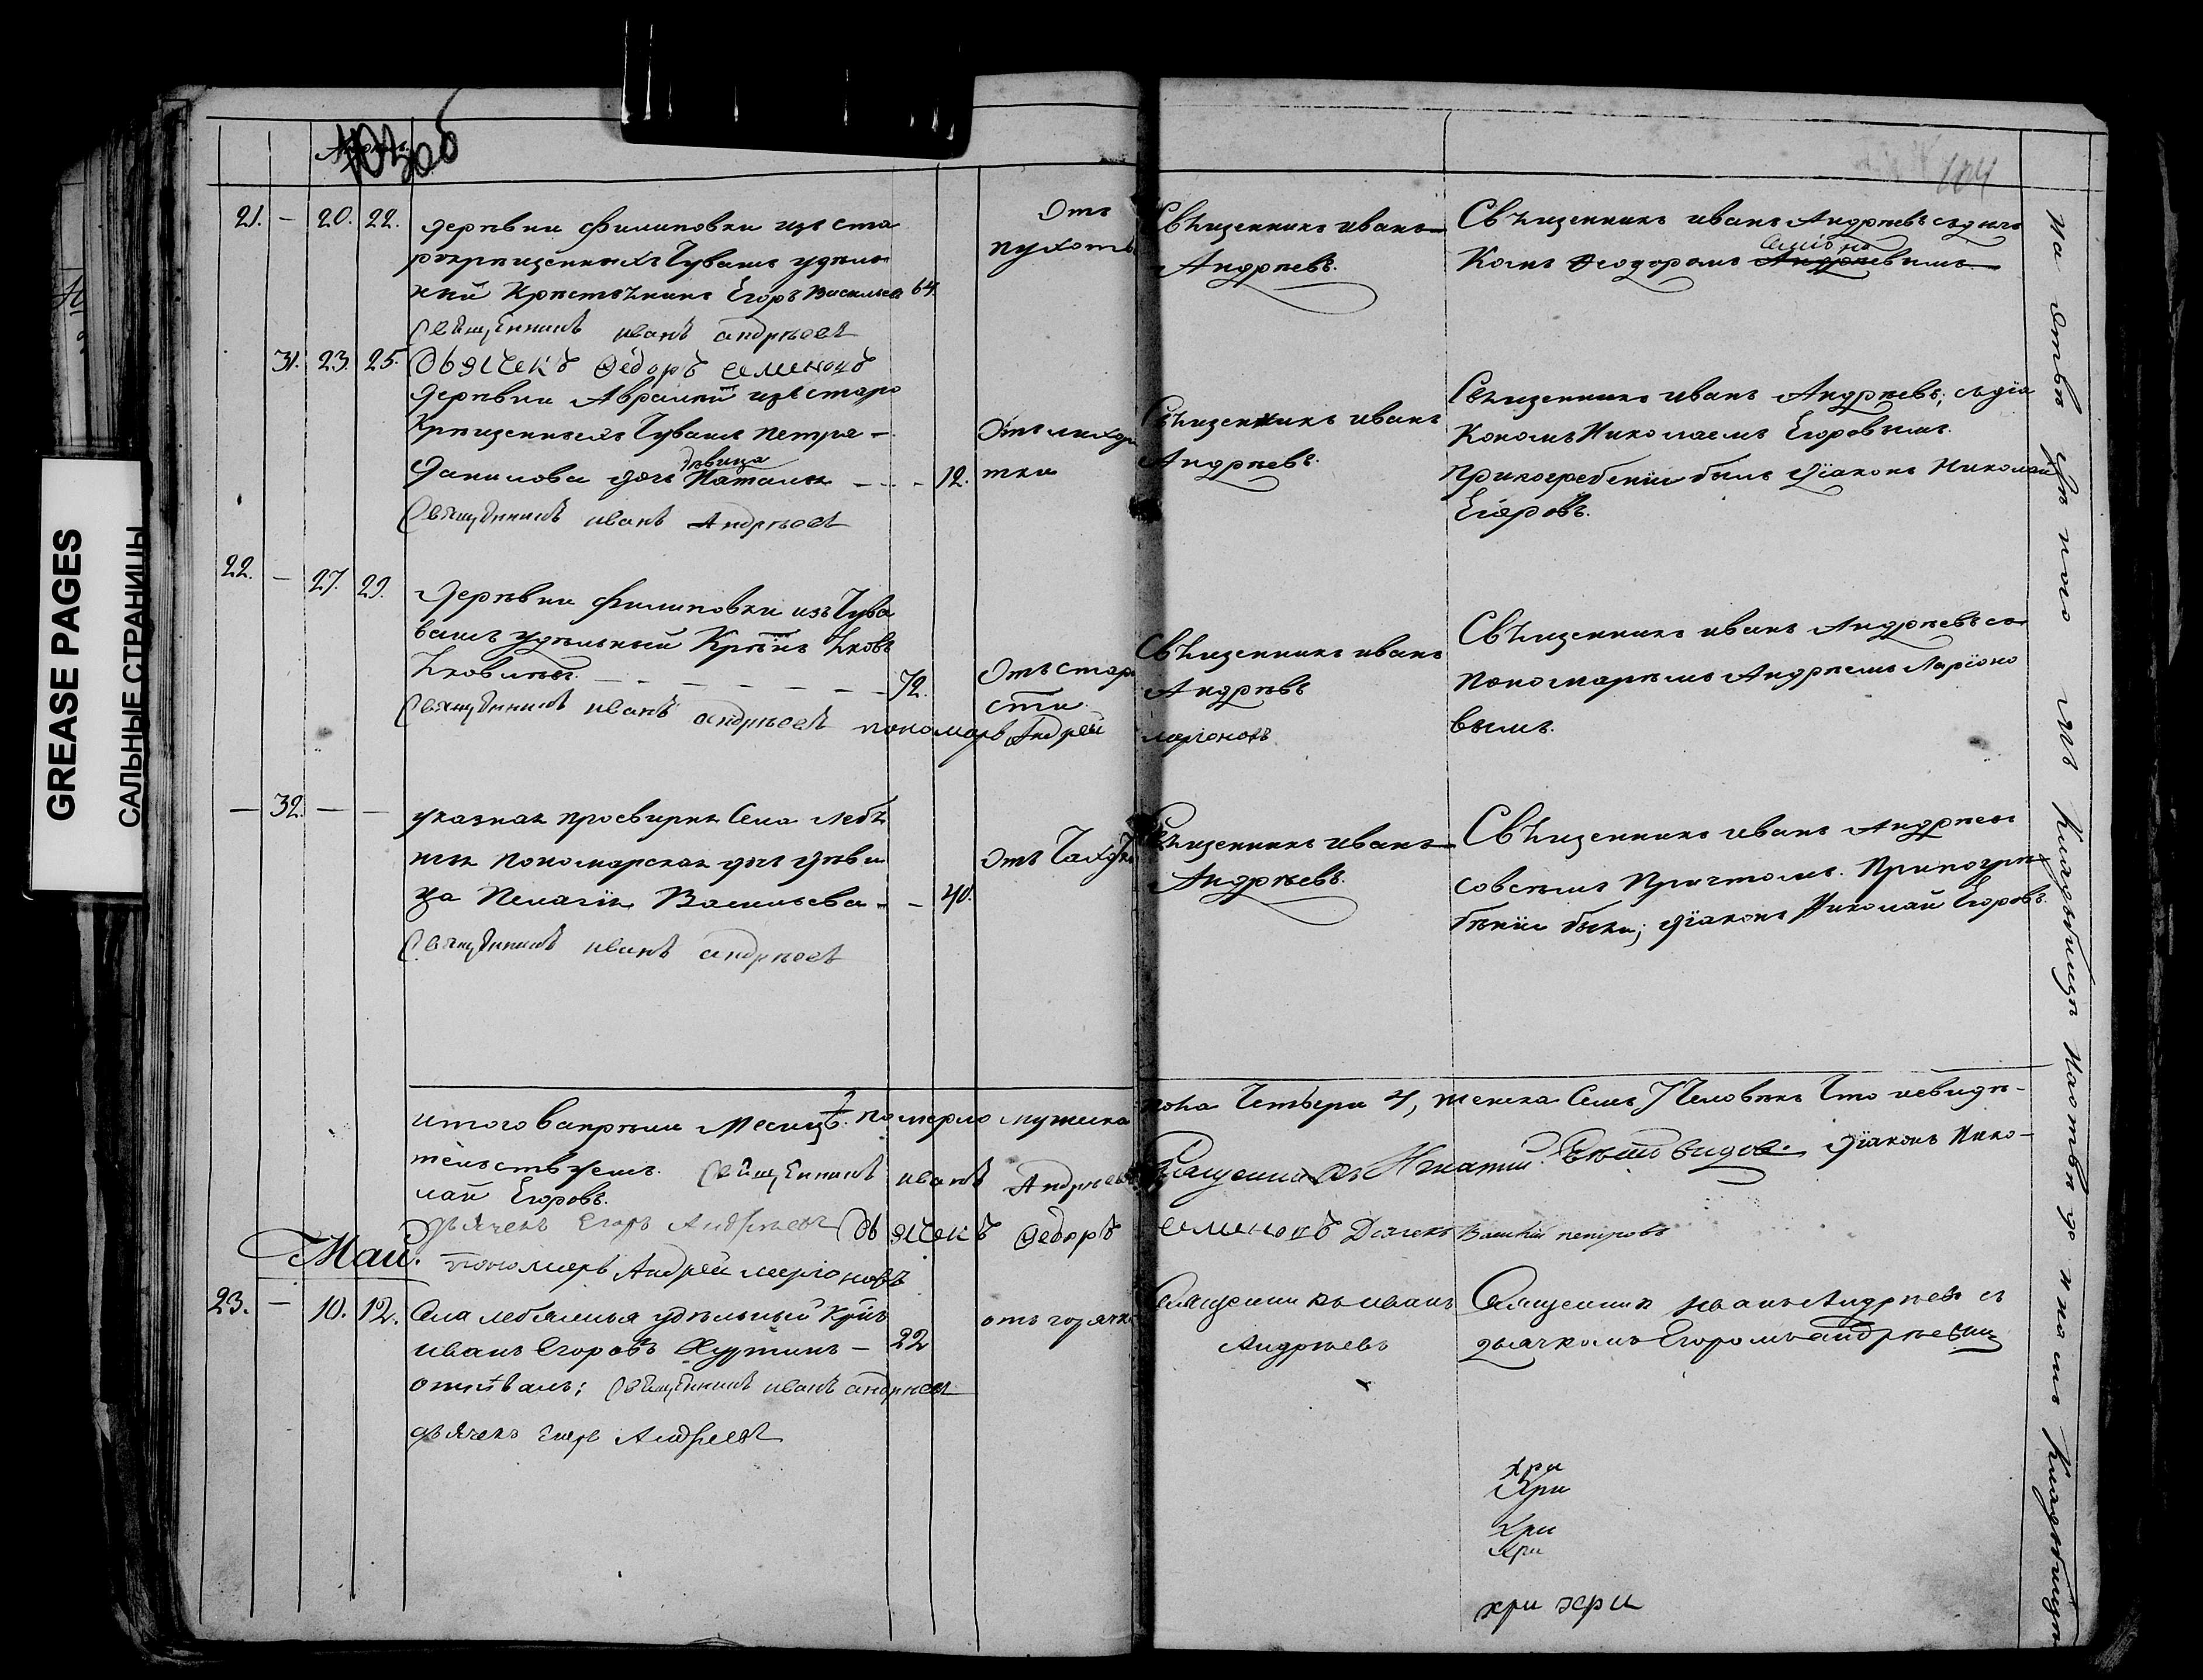 Апрель
103 об
104
21. — 20. 22. деревни Филиповки изъ ста
рокрещенныхъ Чувашъ удѣль
ный Крестьянинъ Егоръ Васильевъ 64.
Отъ
пухоты
Священникъ иванъ
Андреевъ.
Священникъ иванъ Андреевъ съ дьяч
комъ Ѳеодоромъ Андреевымъ
Семіоно
Священникъ иванъ андрѣевъ
Дьячекъ Ѳедоръ семеновъ
31. 23. 25.
деревни Аврали изъ старо
крещенныхъ Чувашъ петра
Данилова дочь девица Наталья — — — 12.
Отъ лихора
тки
Священникъ иванъ
Андреевъ.
Священникъ иванъ Андреевъ; съ діа
кономъ Николаемъ Егоровымъ.
При погребеніи былъ діаконъ Николай
Егоровъ.
Священникъ иванъ Андрѣевъ
22. — 27. 29. Деревни Филиповки изъ Чува
вашъ удѣльный Крѣнъ Яковъ
Яковлевъ. — — — — — — 72.
Отъ старо
сти.
Священникъ иванъ
Андревъ
Священникъ иванъ Андреевъ со
пономаремъ Андреемъ Ларіоно
вымъ.
Священникъ иванъ андрѣевъ пономарь Андрей ларіоновъ
— 32. — — указная просвирня Села Лебя
жья пономарская дочь дѣви
ца Пелагія Васильева — — 40.
отъ Чахотки
Священникъ иванъ
Андрѣевъ.
Священникъ иванъ Андреевъ
со всемъ Причтомъ. При погре
бѣніи были; діаконъ Николай Егоровъ.
Священникъ иванъ андрѣевъ
итого в апрѣли месяцѣ померло мужеска пола Четыри 4, женска Семь 7 Человѣкъ Что и свидѣ-
тельствуемъ. Священникъ иванъ Андрѣевъ Священникъ Игнатий діаконъ Нико-
лай Егоровъ.
дьячекъ Егоръ Андрѣевъ Дьячекъ Ѳедоръ семеновъ Дьячекъ Василій петровъ
пономарь Андрей ларіоновъ
Май.
23. — 10. 12. Села лебяжья удѣльный Крѣнъ
иванъ Егоровъ — 22
отъ горячки
Священникъ иванъ
Андрѣевъ
Священникъ иванъ Андрѣевъ съ
дьячкомъ Егоромъ андрѣевым
отпѣвалъ: Священникъ иванъ андрѣевъ
дьячекъ Егоръ Андреевъ
хри
Хри
Хри
Хри
хри хри
на отвѣденномъ кладбищѣ
GREASE PAGES
САЛЬНЫЕ СТРАНИЦЫ